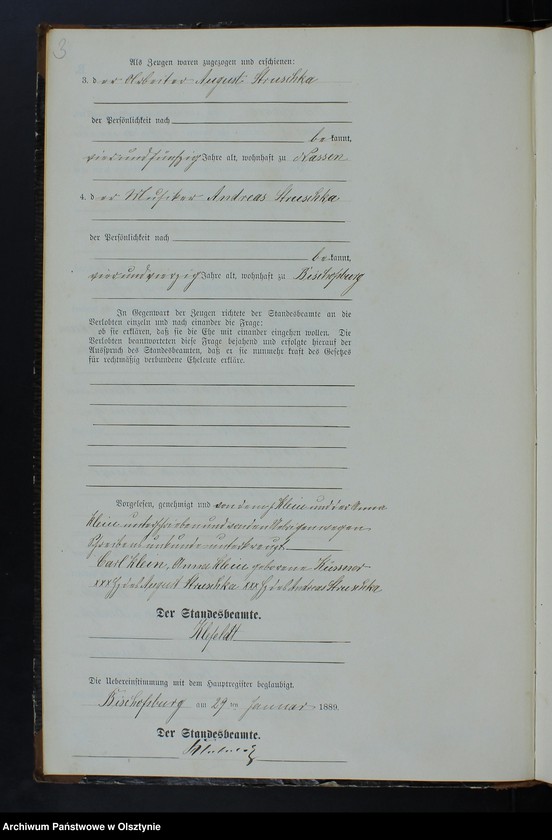 3
Als Zeugen waren zugezogen und erschienen:
3. der Arbeiter August Struschka
der Persönlichkeit nach
bekannt,
vierundfünfzig Jahre alt, wohnhaft zu Kassen
4. der Musiker Andreas Struschka
der Persönlichkeit nach
bekannt,
vierundvierzig Jahre alt, wohnhaft zu Bischofsburg
In Gegenwart der Zeugen richtete der Standesbeamte an die
Verlobten einzeln und nach einander die Frage:
ob sie erklären, daß sie die Ehe mit einander eingehen wollen. Die
Verlobten beantworteten diese Frage bejahend und erfolgte hierauf der
Ausspruch des Standesbeamten, daß er sie nunmehr kraft des Gesetzes
für rechtmäßig verbundene Eheleute erkläre.
Vorgelesen, genehmigt und von dem Klein und der Anna
Klein unterschrieben und von den Uebrigen wegen
Schreibensunkunde unterkreuzt
Carl Klein, Anna Klein geborene
xxx August Struschka xxx Andreas Struschka
Der Standesbeamte.
Die Uebereinstimmung mit dem Hauptregister beglaubigt.
Bischofsburg am 29 ten Januar 1889.
Der Standesbeamte.
Archiwum Państwowe w Olsztynie